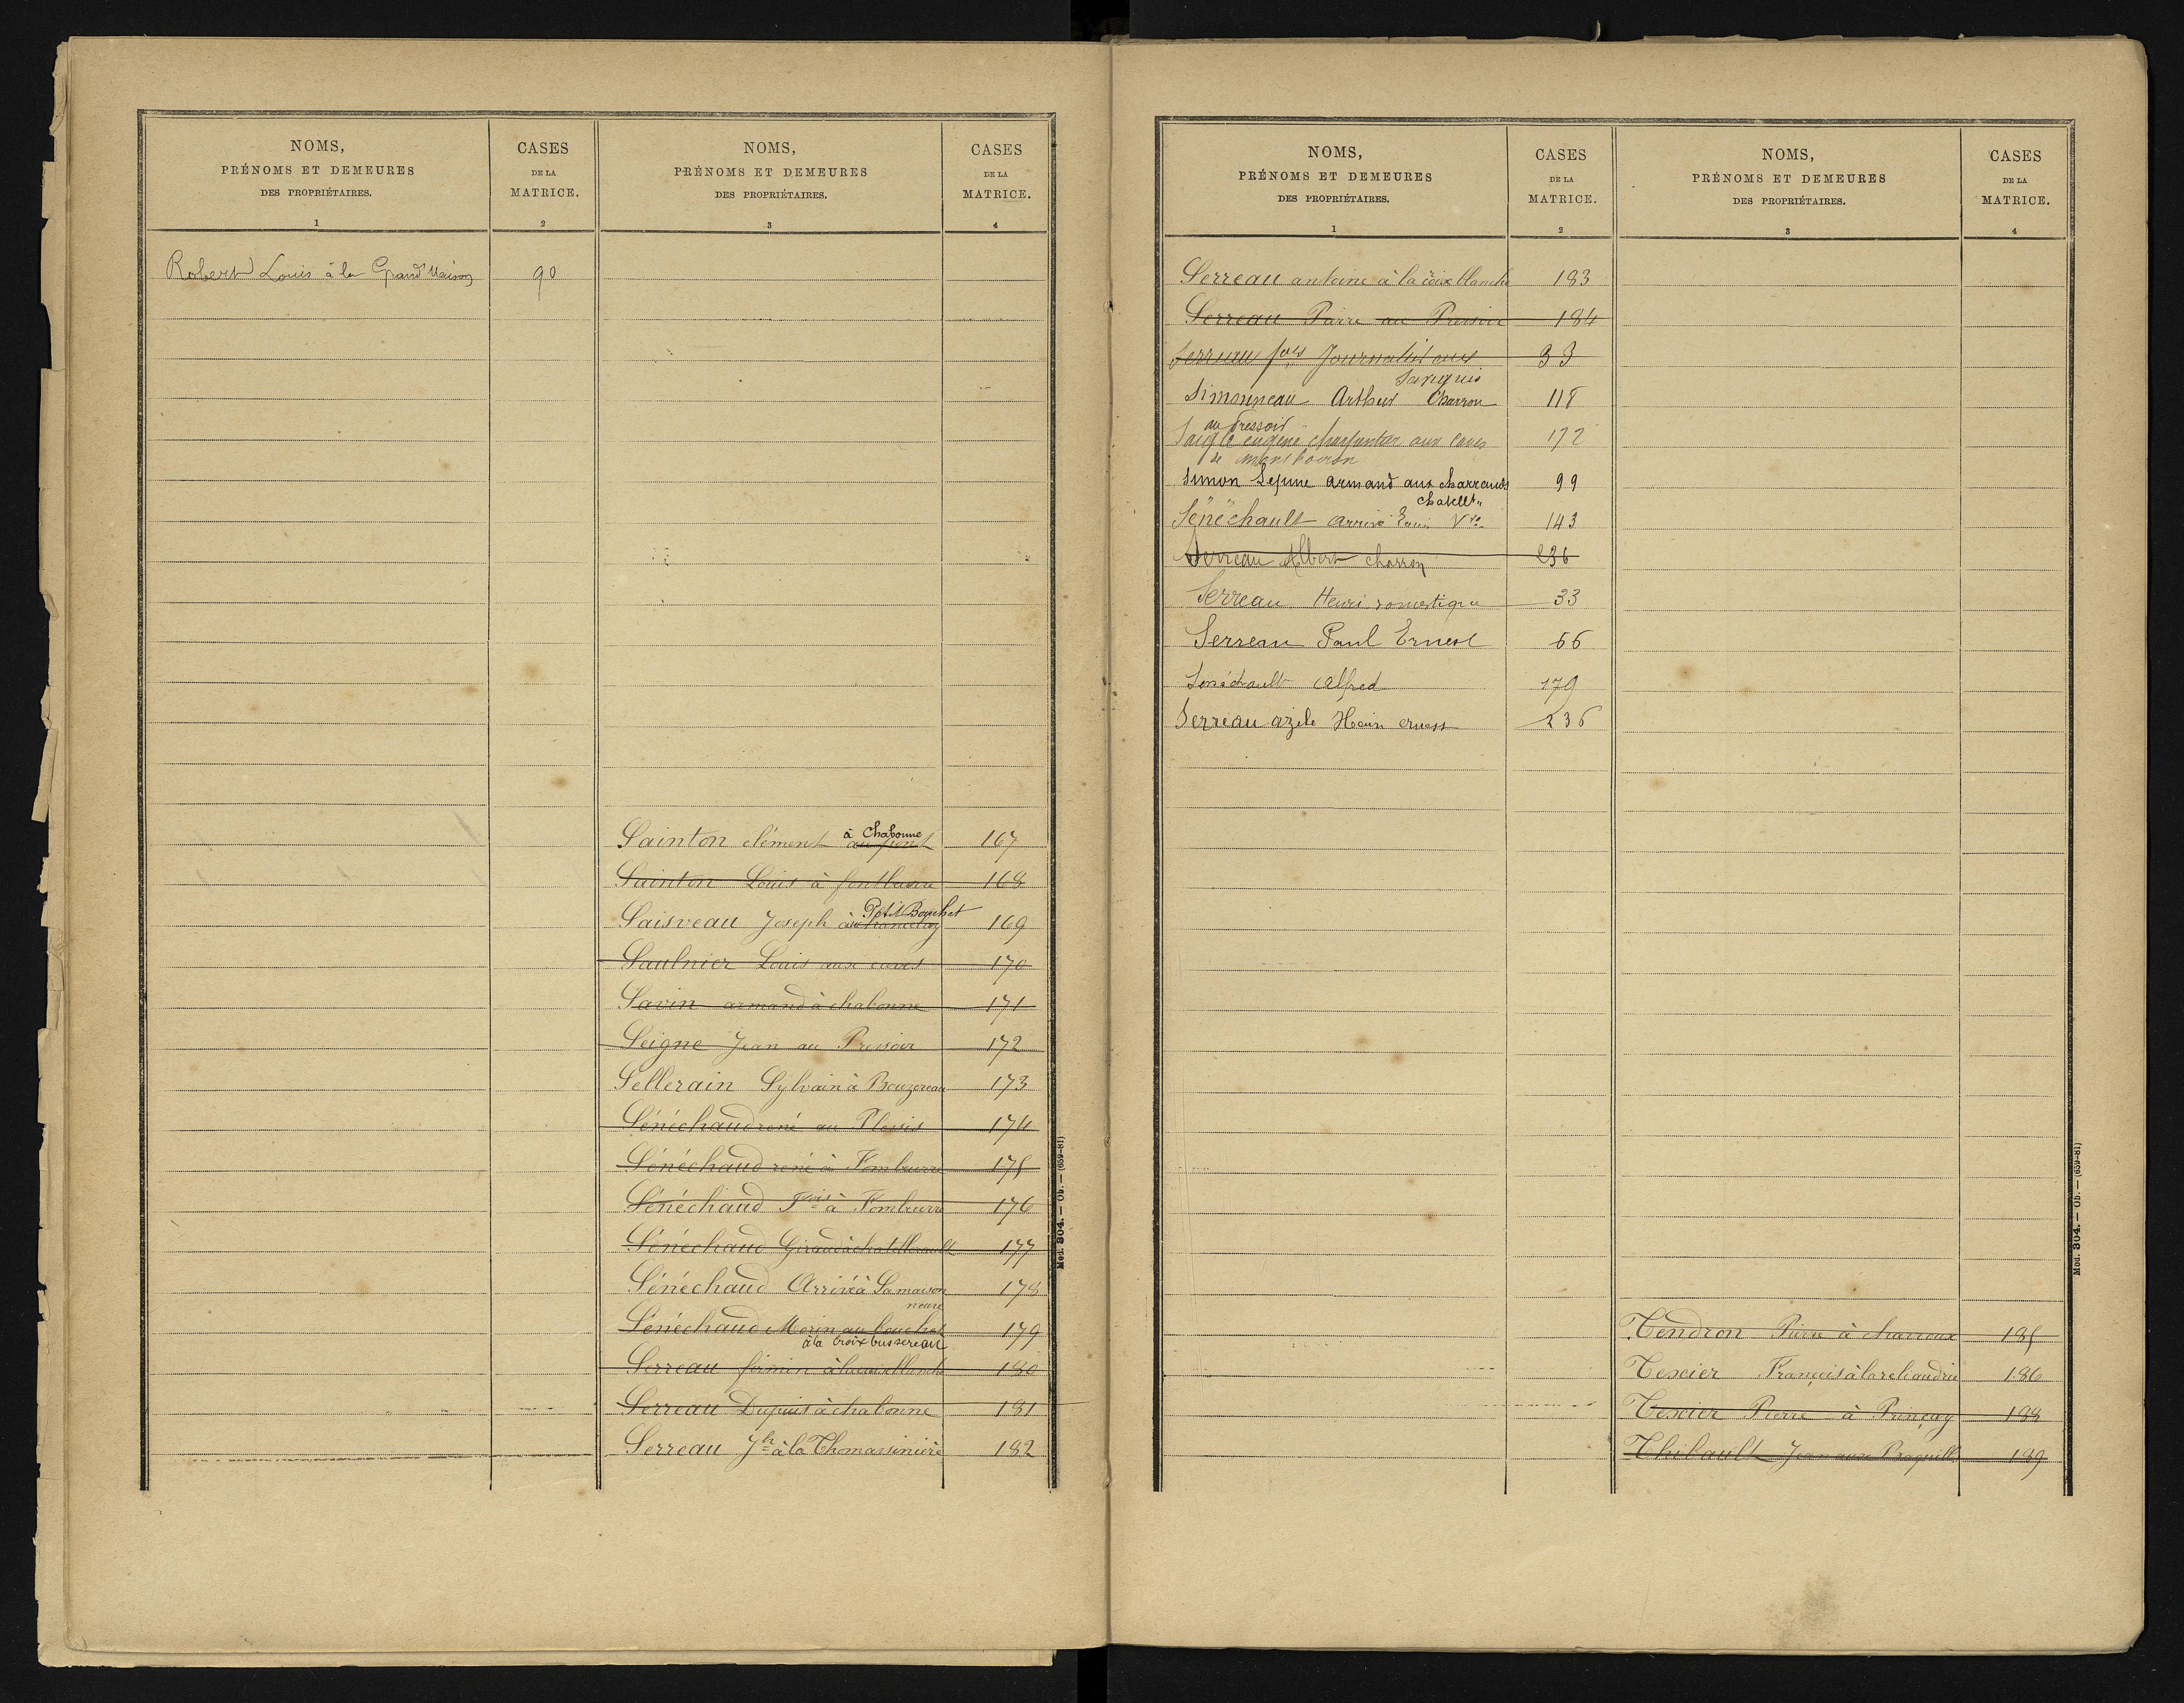 NOMS,
PRÉNOMS ET DEMEURES
DES PROPRIÉTAIRES.
1
CASES
DE LA
MATRICE.
2
NOMS,
PRÉNOMS ET DEMEURES
DES PROPRIÉTAIRES.
3
CASES
DE LA
MATRICE.
4
Robert Louis à la Grand'Maison 90
à Chabonne
Sainton clément au pont 167
Sainton Louis à 168
Petit Bouchet
Saisveau Joseph 169
Saulnier Louis aux caves 170
Savin armand à chabonne 171
Seigne Jean au Pressoir 172
Sellerain Sylvain à Bouzereau 173
Sénéchaud rené au Plessis 174
Sénéchaud rené à Fombeurre 175
Sénéchaud Fçois à Fombeurre 176
Sénéchaud Giraud à chatellerault 177
Sénéchaud Arrivé à La maison 178
neuve
Sénéchaud Morin au bouchet 179
à la Croix bussereau
Serreau firmin à la croix blanche 180
Serreau Dupuis à chabonne 181
Serreau Jh à la Thomassinière 182
Mod. 304. — Ob. — (659-81)
NOMS,
PRÉNOMS ET DEMEURES
DES PROPRIÉTAIRES.
1
CASES
DE LA
MATRICE.
2
NOMS,
PRÉNOMS ET DEMEURES
DES PROPRIÉTAIRES.
3
CASES
DE LA
MATRICE.
4
Serreau antoine à la croix blanche 183
Serreau Pierre au Pressoir 184
Serreau fois Journalist aux 33
Simonneau Arthur Charron 118
au Pressoir
eugene charpentier aux caves 172
de
Simon Lejeune armand aux charrauds 99
chatellt
Sénéchault arrivé Vve 143
Serreau Albert charron 236
Serreau Henri domestique 33
Serreau Paul Ernest 66
Sénéchault Alfred 179
Serreau azele Henri ernest 236
Tendron Pierre à charroux 185
Texier François à la reliaudrie 186
Texier Pierre à Prinçay 188
Thibault Jean aux 189
Mod. 304. — Ob. — (659-81)